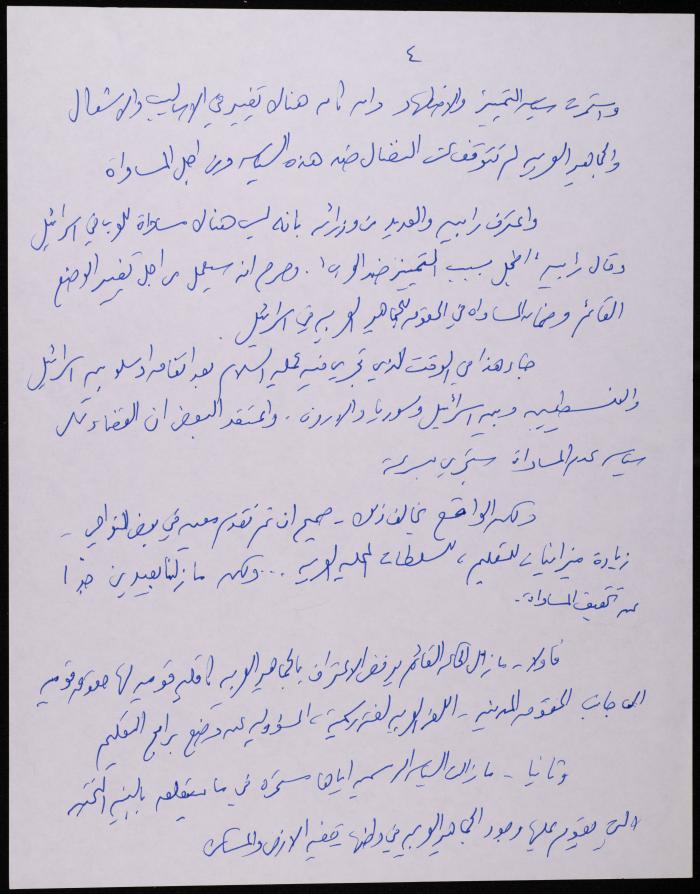 ٤
واستمرت سياسة التمييز والاضطهاد وان كان هناك تغيير في الاساليب والاشكال
والجماهير العربية لم تتوقف عن النضال ضد هذه السياسة ومن اجل المساواة
واعترف رابين والعديد من وزرائه بانه ليس هناك مساواة للعرب في اسرائيل
وقال رابين "اخجل بسبب التمييز ضد العرب". وصرح انه سيعمل من اجل تغيير الوضع
القائم وضمان المساواة في الحقوق للجماهير العربية في اسرائيل.
جاء هذا في الوقت الذي تجري فيه عملية السلام بعد اتفاق اوسلو بين اسرائيل
والفلسطينيين وبين اسرائيل وسوريا والاردن. واعتقد البعض ان القضاء على
سياسة عدم المساواة ستجري بسرعة
ولكن الواقع يخالف ذلك - صحيح ان تم تقدم معين في بعض النواحي -
زيادة ميزانيات للتعليم، للسلطات المحلية العربية ... ولكن ما زلنا بعيدين جدا
عن تحقيق المساواة.
فأولا - ما زال الحكم القائم يرفض الاعتراف بالجماهير العربية كأقلية قومية لها حقوق قومية
الى جانب الحقوق المدنية - اللغة العربية لغة رسمية، المسؤولية عن وضع برامج التعليم
وثانيا - ما زالت السياسة الرسمية اياها مستمرة في ما يتعلق بالبنية التحتية
التي يقوم عليها وجود الجماهير العربية في وطنها قضية الارض والمسكن